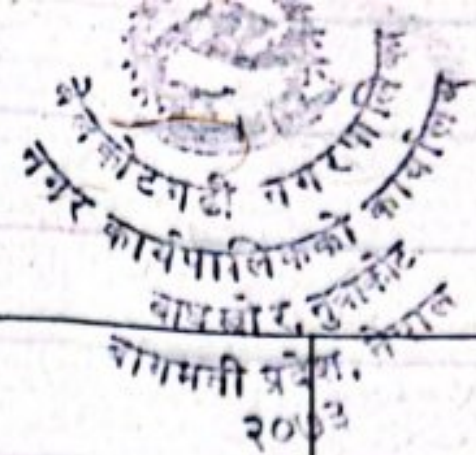 बेलकोटगढी नगरपालिका
नगर कार्यपालिकाको कार्यालय
बाघखोर, नुवाकोट
बागमती प्रदेश, नेपाल
२०७३